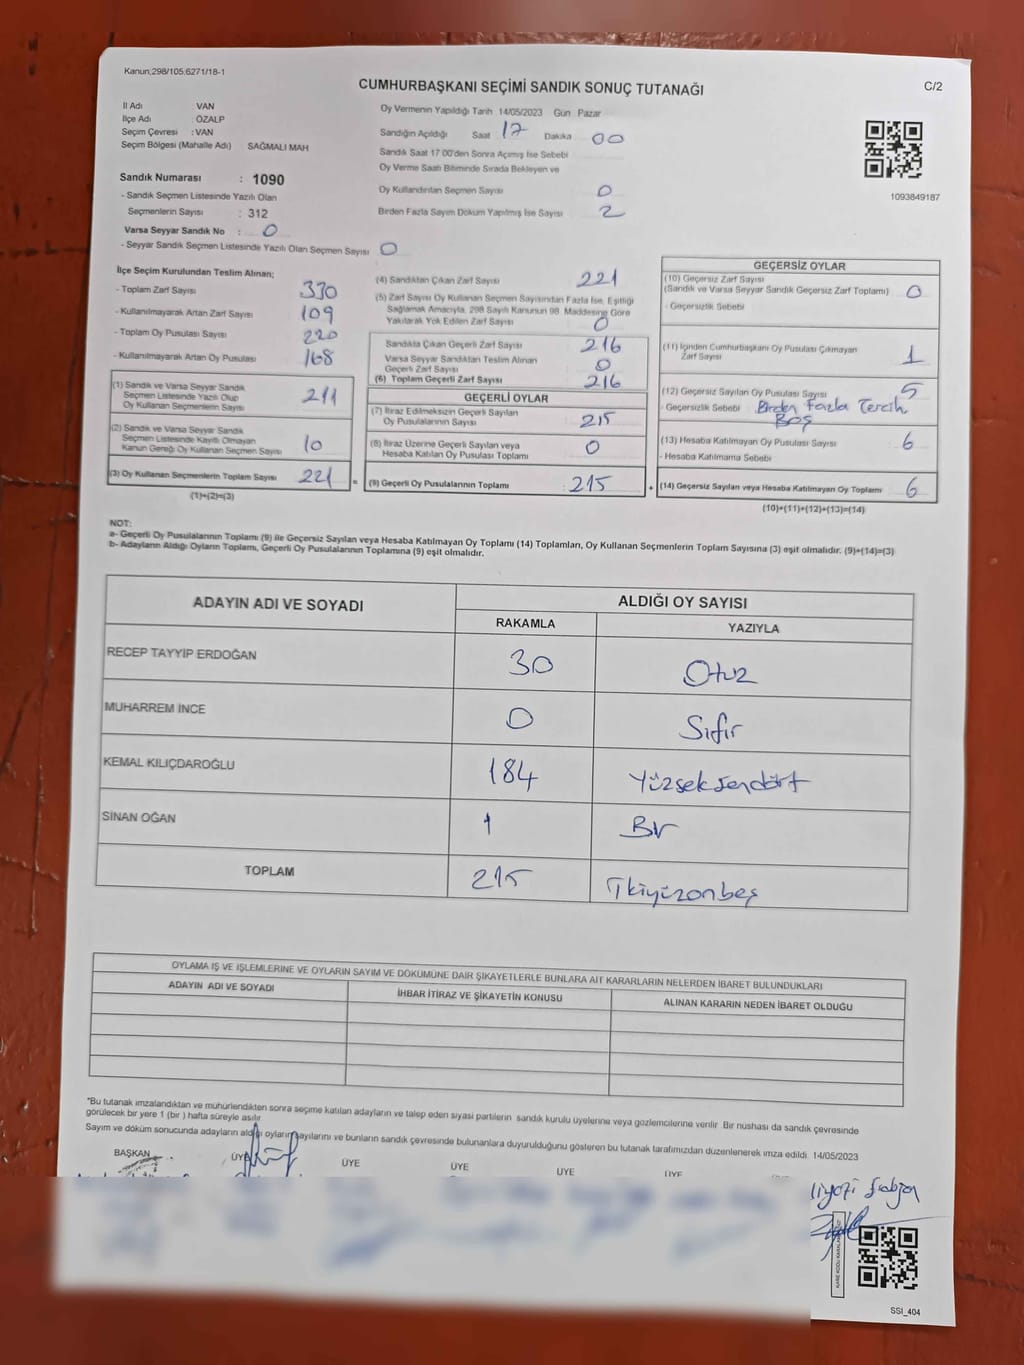 Kanun;298/105;6271/18-1
C/2
CUMHURBAŞKANI SEÇİMİ SANDIK SONUÇ TUTANAĞI
İl Adı VAN
İlçe Adı : ÖZALP
Seçim Çevresi : VAN
Seçim Bölgesi (Mahalle Adı) SAĞMALI MAH
Oy Vermenin Yapıldığı Tarih 14/05/2023 Gün Pazar
Sandığın Açıldığı Saat 17 Dakika 00
Sandık Saat 17:00'den Sonra Açımış İse Sebebi
Oy Verme Saati Bitiminde Sırada Bekleyen ve
Oy Kullandırılan Seçmen Sayısı 0
Birden Fazla Sayım Döküm Yapılmış İse Sayısı 2
1093849187
Sandık Numarası : 1090
- Sandık Seçmen Listesinde Yazılı Olan
Seçmenlerin Sayısı : 312
Varsa Seyyar Sandık No : 0
- Seyyar Sandık Seçmen Listesinde Yazılı Olan Seçmen Sayısı 0
İlçe Seçim Kurulundan Teslim Alınan;
- Toplam Zarf Sayısı 330
- Kullanılmayarak Artan Zarf Sayısı 109
- Toplam Oy Pusulası Sayısı
- Kullanılmayarak Artan Oy Pusulası 168
(1) Sandık ve Varsa Seyyar Sandık
Seçmen Listesinde Yazılı Olup
Oy Kullanan Seçmenlerin Sayısı 211
(2) Sandık ve Varsa Seyyar Sandık
Seçmen Listesinde Kayıtlı Olmayan
Kanun Gereği Oy Kullanan Seçmen Sayısı 10
(3) Oy Kullanan Seçmenlerin Toplam Sayısı 221
(1)+(2)=(3)
(4) Sandıktan Çıkan Zarf Sayısı 221
(5) Zarf Sayısı Oy Kullanan Seçmen Sayısından Fazla İse, Eşitliği
Sağlamak Amacıyla, 298 Sayılı Kanunun 98. Maddesine Göre
Yakılarak Yok Edilen Zarf Sayısı 0
Sandıkta Çıkan Geçerli Zarf Sayısı 216
Varsa Seyyar Sandıktan Teslim Alınan
Geçerli Zarf Sayısı 0
(6) Toplam Geçerli Zarf Sayısı 216
GEÇERLİ OYLAR
(7) İtiraz Edilmeksizin Geçerli Sayılan
Oy Pusulalarının Sayısı 215
(8) İtiraz Üzerine Geçerli Sayılan veya
Hesaba Katılan Oy Pusulası Toplamı 0
(9) Geçerli Oy Pusulalarının Toplamı 215
GEÇERSİZ OYLAR
(10) Geçersiz Zarf Sayısı
(Sandık ve Varsa Seyyar Sandık Geçersiz Zarf Toplamı) 0
- Geçersizlik Sebebi
(11) İçinden Cumhurbaşkanı Oy Pusulası Çıkmayan
Zarf Sayısı 1
(12) Geçersiz Sayılan Oy Pusulası Sayısı 5
- Geçersizlik Sebebi Birden Fazla Tercih
Boş
(13) Hesaba Katılmayan Oy Pusulası Sayısı 6
- Hesaba Katılmama Sebebi
(14) Geçersiz Sayılan veya Hesaba Katılmayan Oy Toplamı 6
(10)+(11)+(12)+(13)=(14)
NOT:
a- Geçerli Oy Pusulalarının Toplamı (9) ile Geçersiz Sayılan veya Hesaba Katılmayan Oy Toplamı (14) Toplamları, Oy Kullanan Seçmenlerin Toplam Sayısına (3) eşit olmalıdır. (9)+(14)=(3)
b- Adayların Aldığı Oyların Toplamı, Geçerli Oy Pusulalarının Toplamına (9) eşit olmalıdır.
ADAYIN ADI VE SOYADI
ALDIĞI OY SAYISI
RAKAMLA YAZIYLA
RECEP TAYYİP ERDOĞAN 30 Otuz
MUHARREM İNCE 0 Sıfır
KEMAL KILIÇDAROĞLU 184 Yüzseksendört
SİNAN OĞAN 1 Bir
TOPLAM 215 İkiyüzonbeş
OYLAMA İŞ VE İŞLEMLERİNE VE OYLARIN SAYIM VE DÖKÜMÜNE DAİR ŞİKAYETLERLE BUNLARA AİT KARARLARIN NELERDEN İBARET BULUNDUKLARI
ADAYIN ADI VE SOYADI İHBAR İTİRAZ VE ŞİKAYETİN KONUSU ALINAN KARARIN NEDEN İBARET OLDUĞU
"Bu tutanak imzalandıktan ve mühürlendikten sonra seçime katılan adayların ve talep eden siyasi partilerin sandık kurulu üyelerine veya gözlemcilerine verilir. Bir nushası da sandık çevresinde
görülecek bir yere 1 (bir ) hafta süreyle asılır.
Sayım ve döküm sonucunda adayların aldığı oyların sayılarını ve bunların sandık çevresinde bulunanlara duyurulduğunu gösteren bu tutanak tarafımızdan düzenlenerek imza edildi. 14/05/2023
BAŞKAN ÜYE ÜYE ÜYE ÜYE ÜYE
SSİ_404